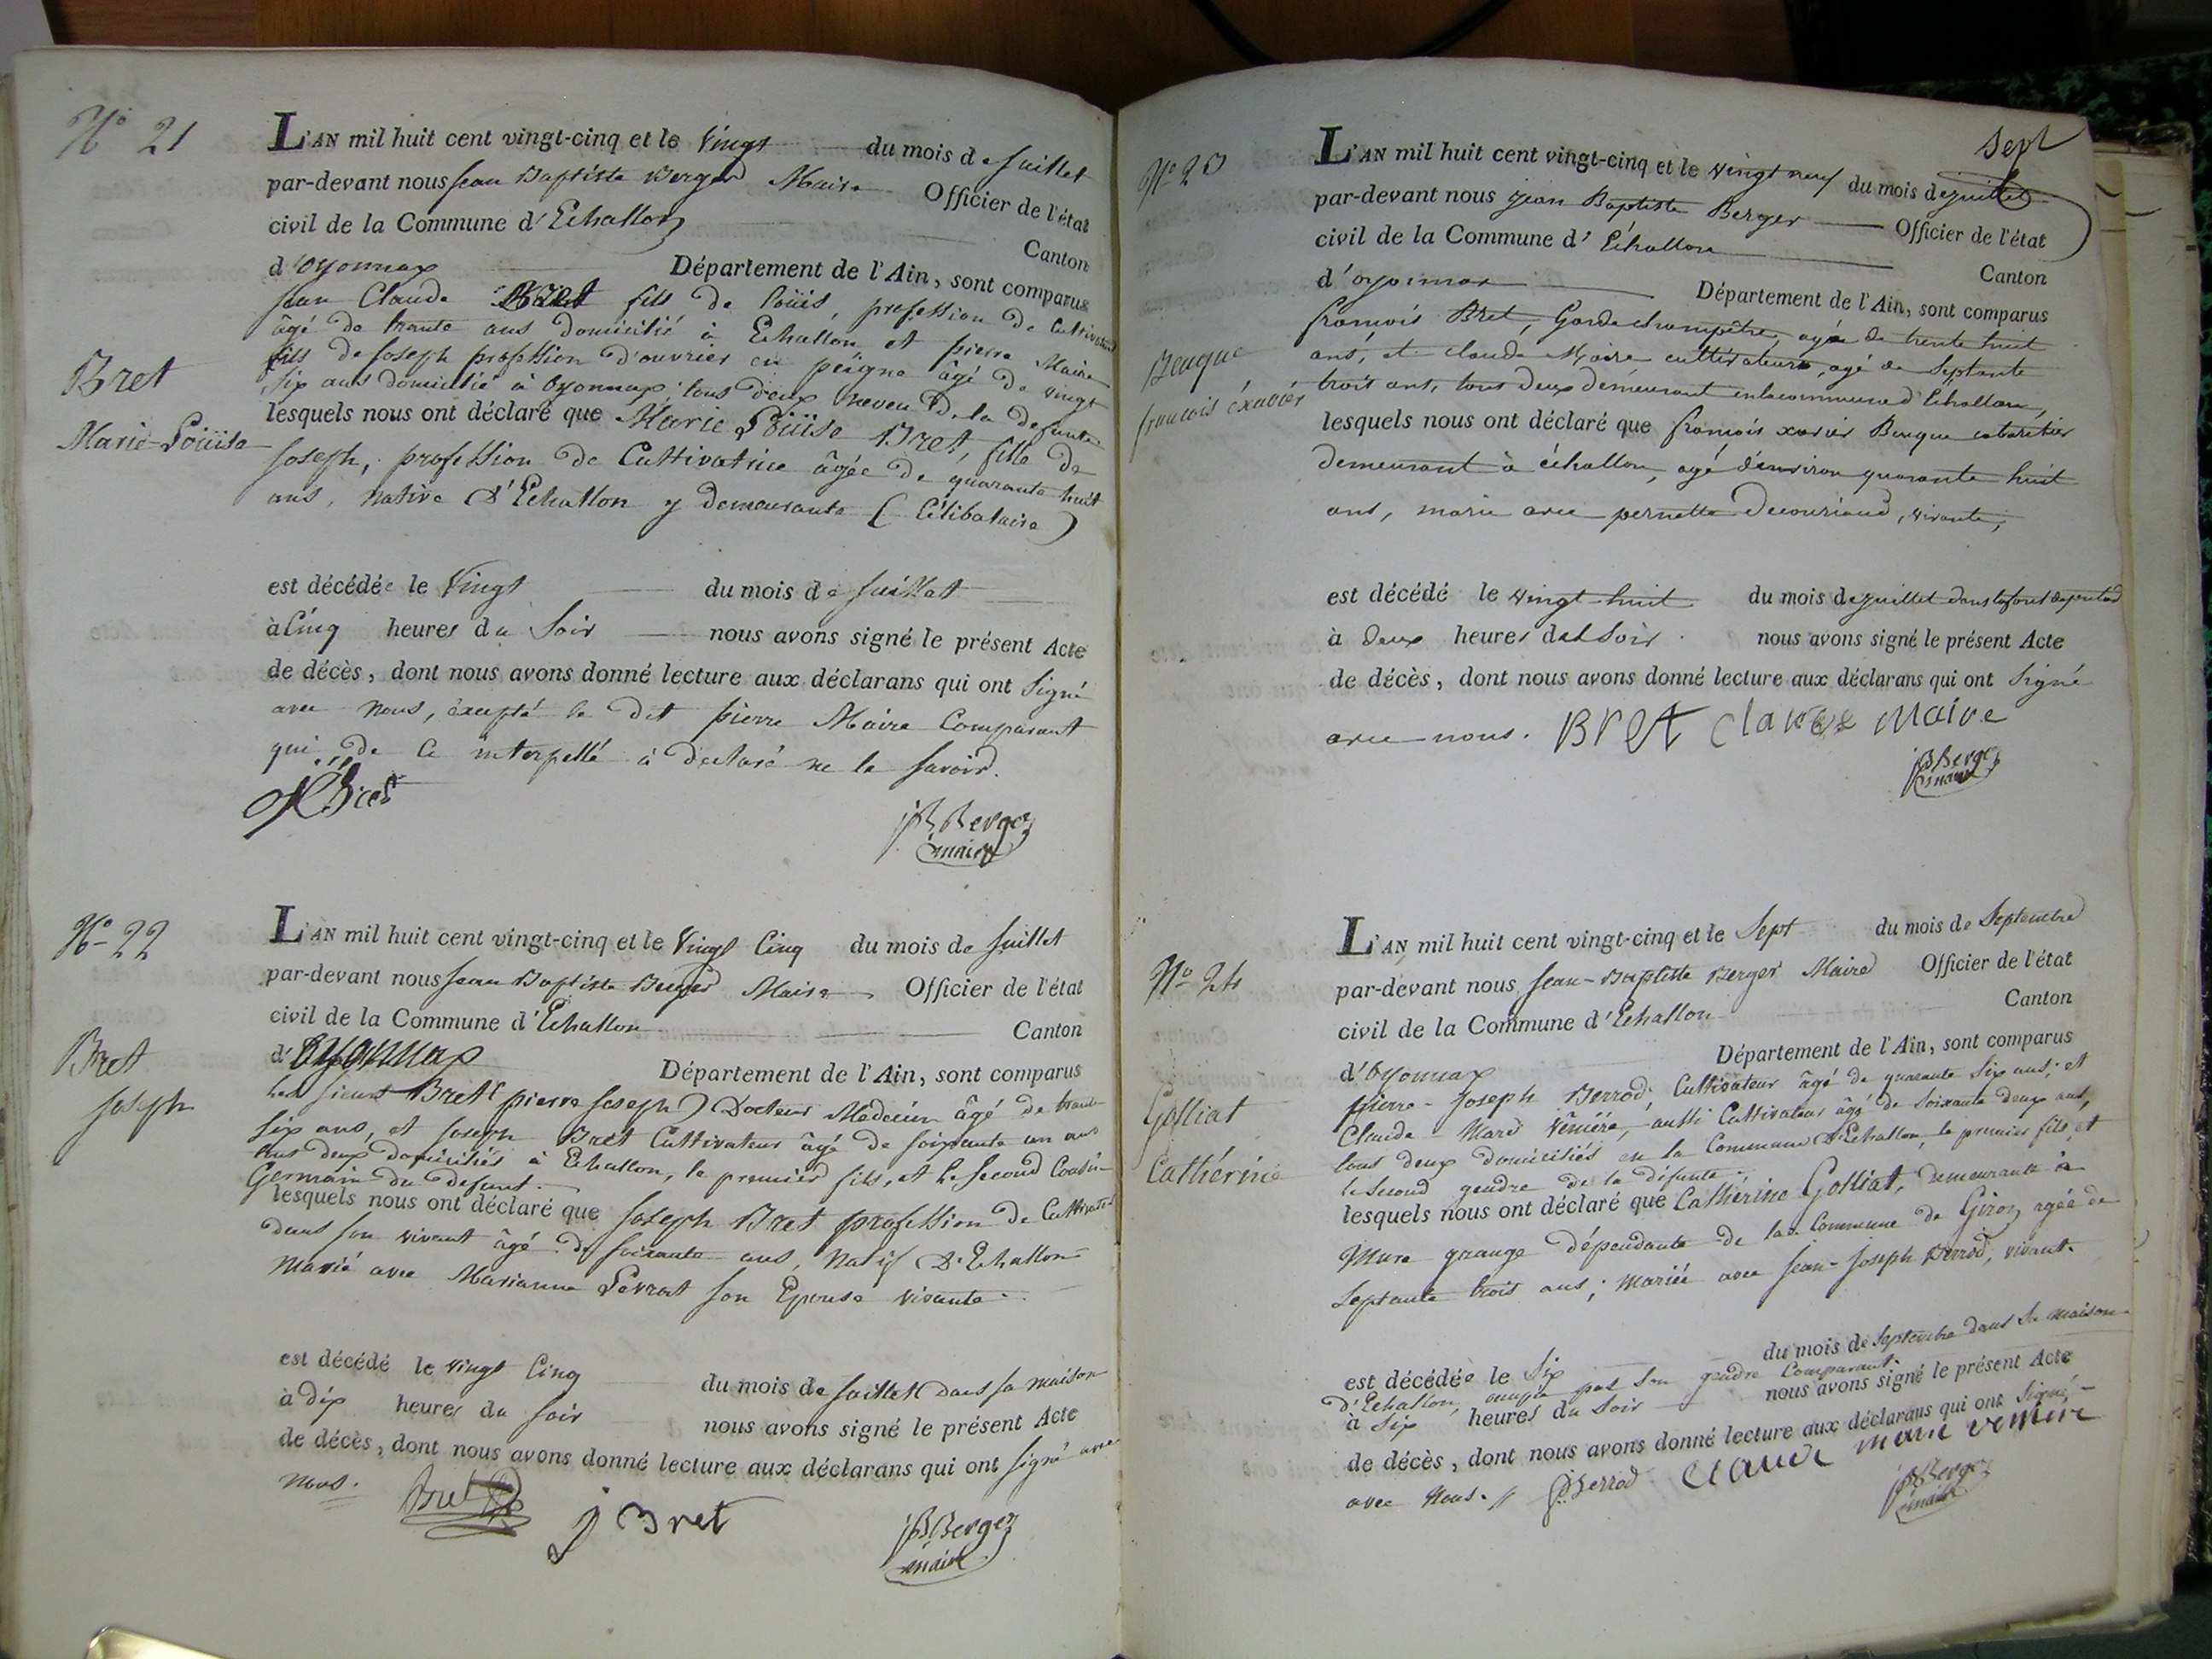 N° 21
Bret
Marie-Loüise
L'AN mil huit cent vingt-cinq et le Vingt du mois de Juillet
par-devant nous Jean Baptiste Berger Maire Officier de l'état
civil de la Commune d'Echallon Canton
d'Oyonnax Département de l'Ain, sont comparus
Jean Claude Bret fils de Loüis, profession de Cultivateur
âgé de trante ans domicilié à Echallon et pierre Maire
fils de Joseph profession d'ouvrier en peigne âgé de vingt
six ans domicilié à Oyonnax; tous deux neveu de la defunte
lesquels nous ont déclaré que Marie Loüise Bret, fille de
Joseph, profession de Cultivatrice âgée de quarante huit
ans, native d'Echallon y demeurante (Célibataire)
est décédée le Vingt du mois de Juillet
à Cinq heures du Soir nous avons signé le présent Acte
de décès, dont nous avons donné lecture aux déclarans qui ont Signé
avec nous, éxcepté le dit pierre Maire Comparant
qui de Ce interpellé à déclaré ne le Savoir.
JC Bret
JB Berger
maire
N° 22
Bret
Joseph
L'AN mil huit cent vingt-cinq et le Vingt Cinq du mois de Juillet
par-devant nous Jean Baptiste Berger Maire Officier de l'état
civil de la Commune d'Echallon Canton
d'Oyonnax Département de l'Ain, sont comparus
Les sieurs Bret (pierre Joseph) Docteur Medecin âgé de trante
Six ans, et Joseph Bret Cultivateur âgé de soixante un ans
tous deux domiciliés à Echallon, le premier fils, et le Second Cousin
Germain du defunt.
lesquels nous ont déclaré que Joseph Bret profession de Cultivateur
dans son vivant âgé de soixante ans, natif d'Echallon
marié avec Marianne Levrat son Epouse vivante.
est décédé le vingt Cinq du mois de Juillet dans sa maison
à dix heures du soir nous avons signé le présent Acte
de décès, dont nous avons donné lecture aux déclarans qui ont signé avec
nous.
Bret
j Bret
JB Berger
maire
N° 23
Benque
francois éxavier
L'AN mil huit cent vingt-cinq et le vingt neuf du mois de juillet Sept
par-devant nous jean Baptiste Berger Officier de l'état
civil de la Commune d'Echallon Canton
d'oyonnax Département de l'Ain, sont comparus
francois Bret, Garde champêtre, agé de trente huit
ans, et claude Maire cultivateur, agé de Septante
trois ans, tous deux demeurant en la commune d'Echallon,
lesquels nous ont déclaré que francois xavier Benque cabaretier
demeurant à échallon, agé d'environ quarante huit
ans, marié avec pernette Decouriaud, vivante,
est décédé le vingt huit du mois de juillet dans
à deux heures du Soir nous avons signé le présent Acte
de décès, dont nous avons donné lecture aux déclarans qui ont Signé
avec nous. Bret claude Maire
JB Berger
maire
N° 24
Golliat
Cathérine
L'AN mil huit cent vingt-cinq et le Sept du mois de Septembre
par-devant nous Jean-Baptiste Berger Maire Officier de l'état
civil de la Commune d'Echallon Canton
d'Oyonnax Département de l'Ain, sont comparus
Pierre-Joseph Berrod, Cultivateur âgé de quarante Six ans; et
Claude-Marie Vênière, aussi Cultivateur âgé de soixante deux ans,
tous deux domiciliés en la Commune d'Echallon, le premier fils et
le Second gendre de la défunte.
lesquels nous ont déclaré que Cathérine Golliat, demeurante à
Mure grange dépendante de la Commune de Giron agée de
Septante trois ans; mariée avec Jean-Joseph Berrod, vivant.
est décédée le Six du mois de Septembre dans la maison
d'Echallon, occupée par Son gendre Comparant.
à Six heures du Soir nous avons signé le présent Acte
de décès, dont nous avons donné lecture aux déclarans qui ont Signé
avec Nous. PJ Berrod Claude marie veniere
JB Berger
maire